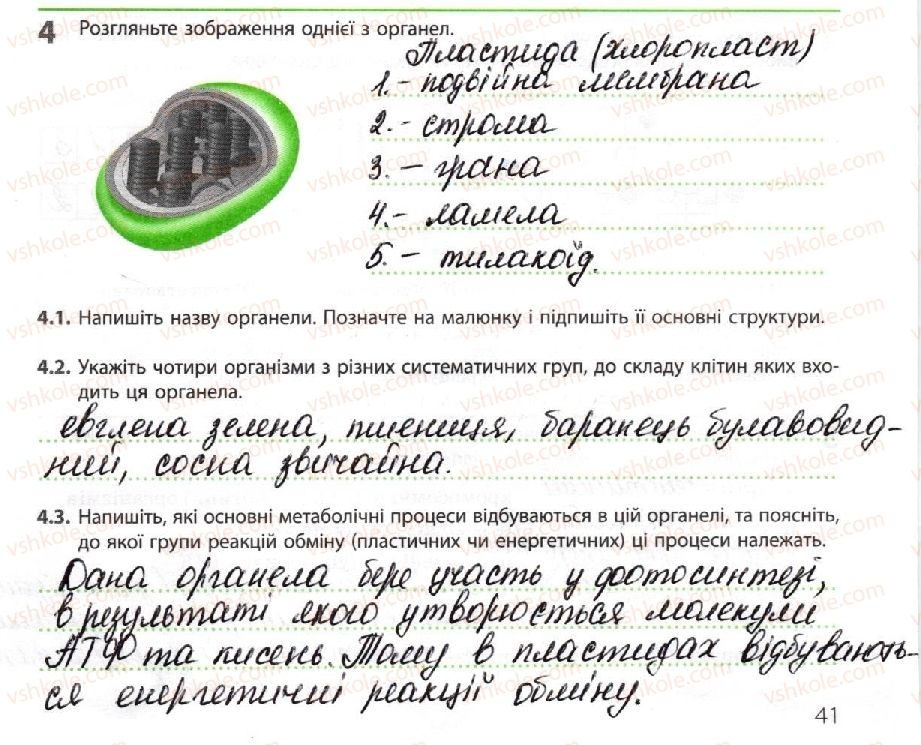 4 Розгляньте зображення однієї з органел.
Пластида (хлоропласт)
1. - подвійна мембрана
2. - строма
3. - грана
4. - ламела
5. - тилакоїд.
4.1. Напишіть назву органели. Позначте на малюнку і підпишіть її основні структури.
4.2. Укажіть чотири організми з різних систематичних груп, до складу клітин яких вхо-
дить ця органела.
евглена зелена, пшениця, баранець булавовид-
ний, сосна звичайна.
4.3. Напишіть, які основні метаболічні процеси відбуваються в цій органелі, та поясніть,
до якої групи реакцій обміну (пластичних чи енергетичних) ці процеси належать.
Дана органела бере участь у фотосинтезі,
в результаті якого утворюється молекули
АТФ та кисень. Тому в пластидах відбувають-
ся енергетичні реакції обміну.
41